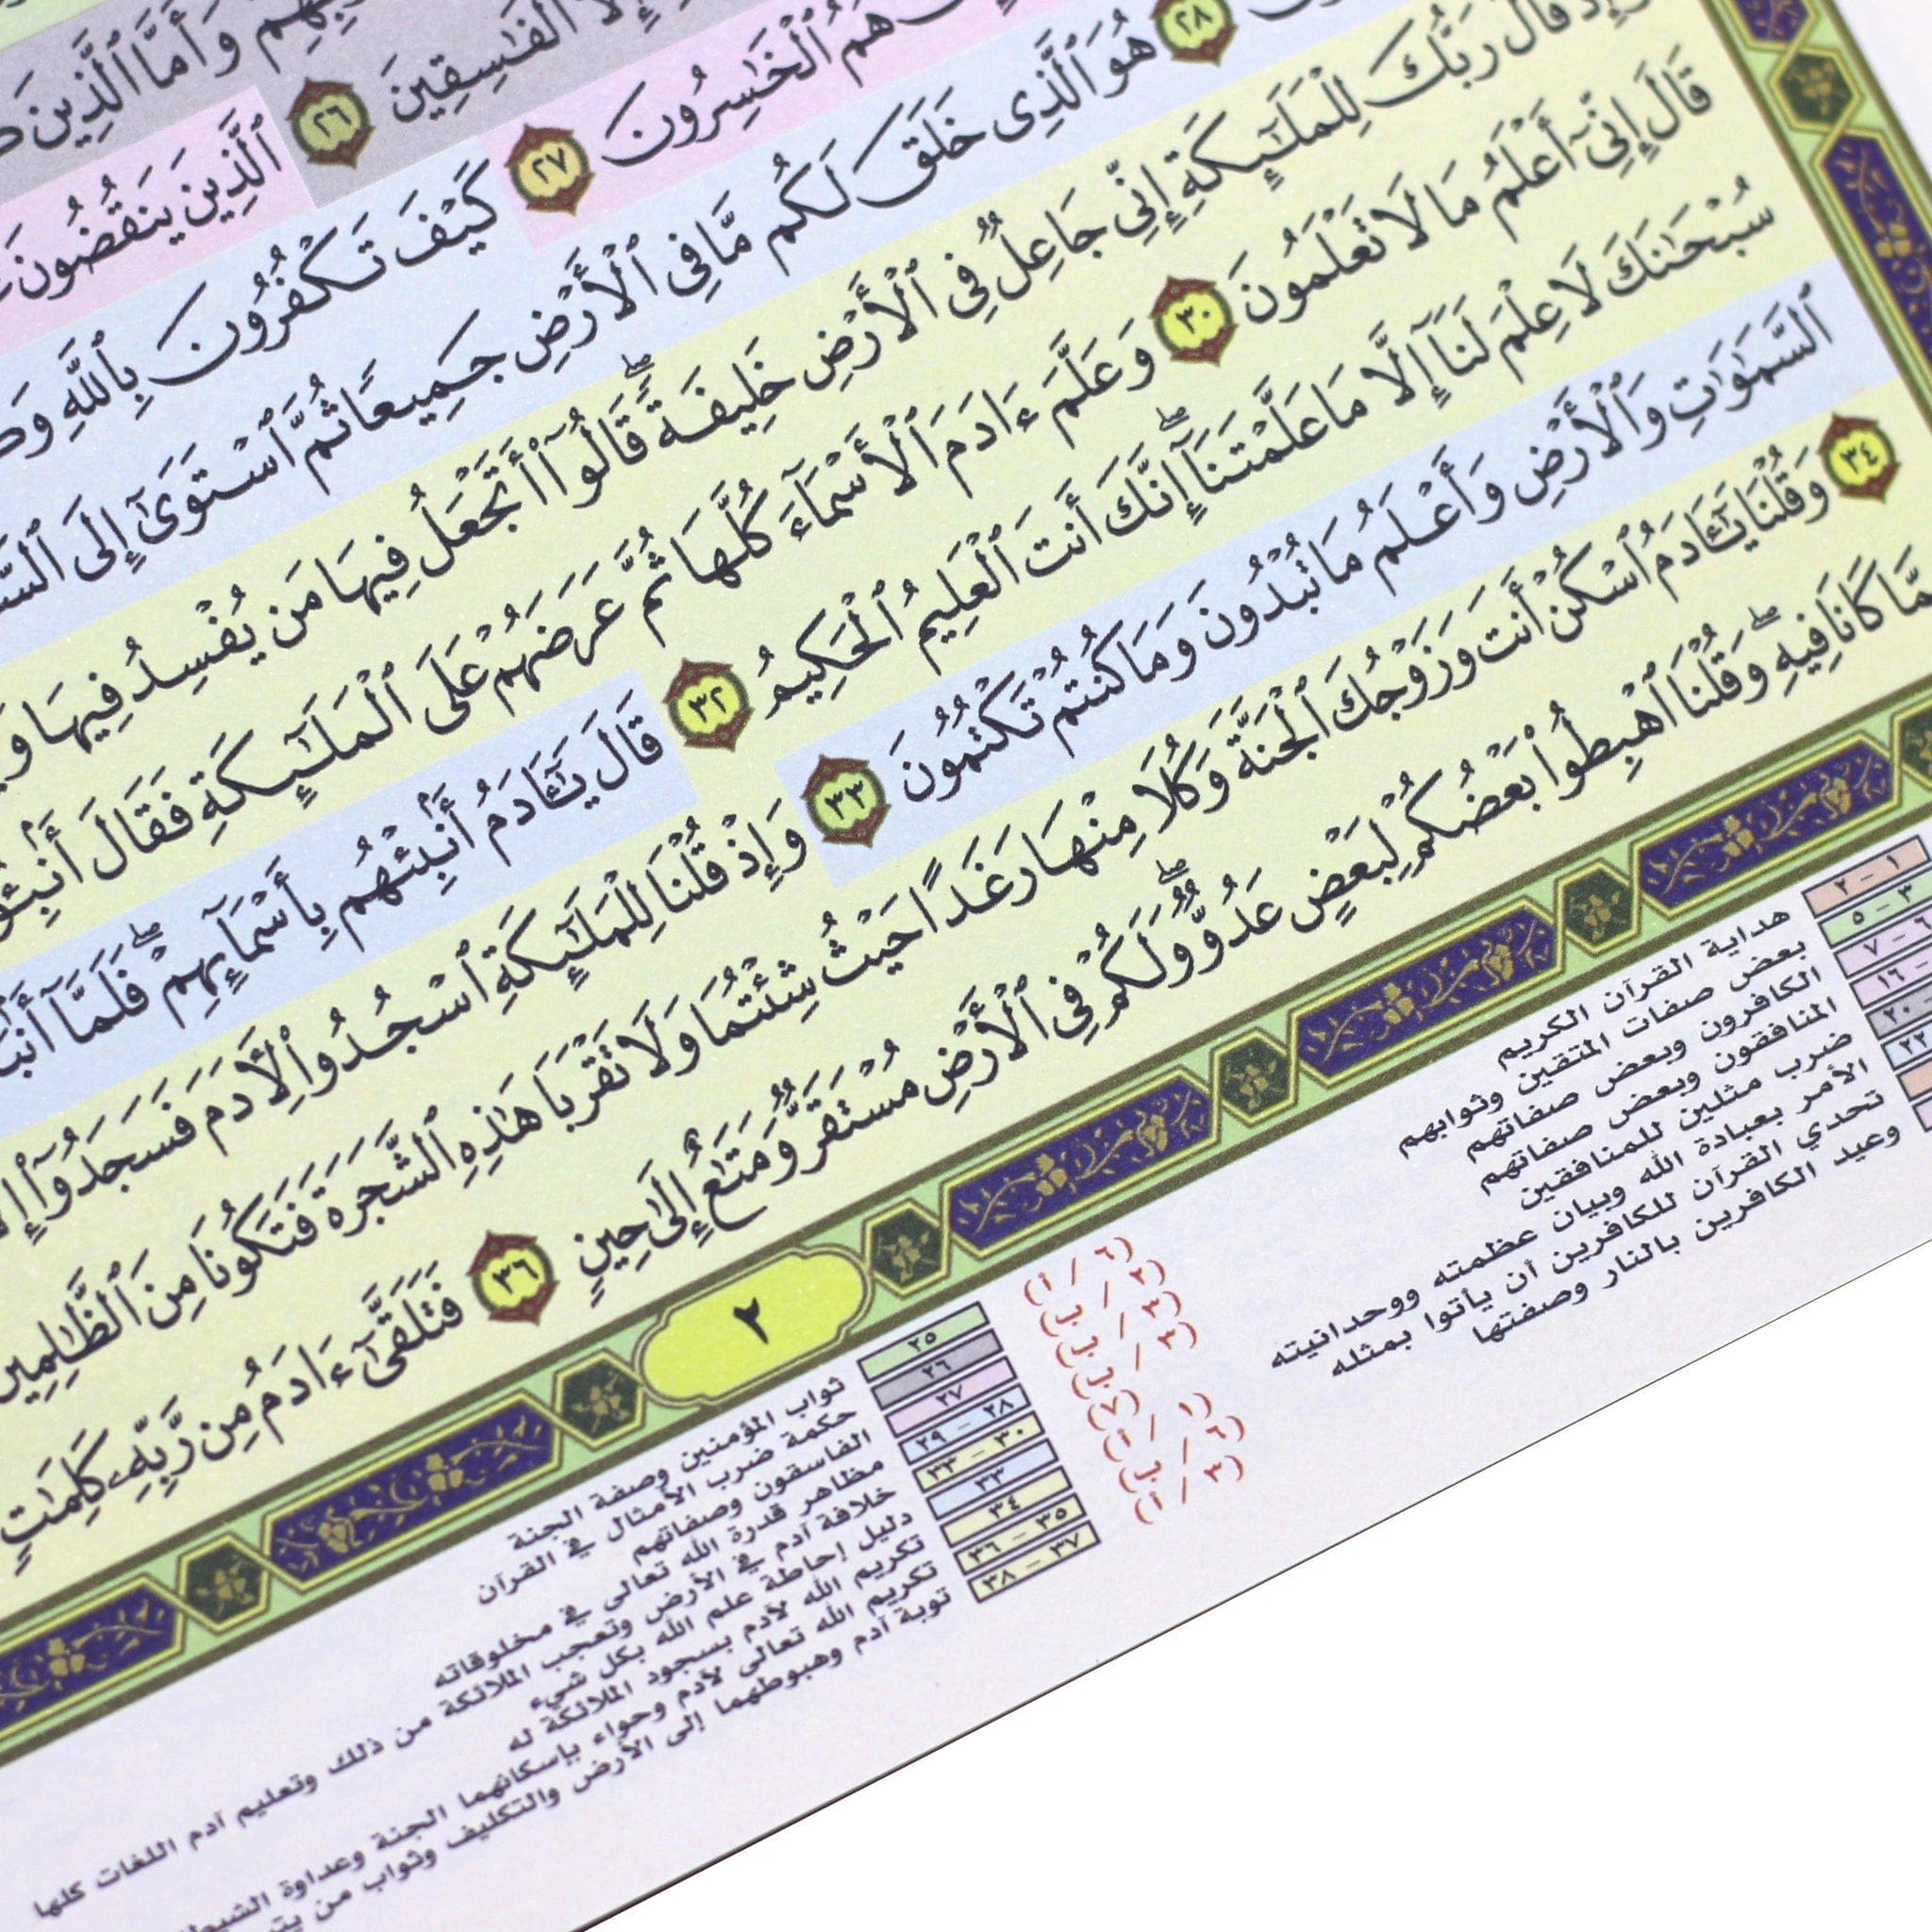 وَأَمَّا ٱلَّذِينَ
إِلَّا ٱلْفَٰسِقِينَ ٢٦ ٱلَّذِينَ يَنقُضُونَ
هُمُ ٱلْخَٰسِرُونَ ٢٧ كَيْفَ تَكْفُرُونَ بِٱللَّهِ
٢٨ هُوَ ٱلَّذِى خَلَقَ لَكُم مَّا فِى ٱلْأَرْضِ جَمِيعًا ثُمَّ ٱسْتَوَىٰٓ إِلَى
وَإِذْ قَالَ رَبُّكَ لِلْمَلَٰٓئِكَةِ إِنِّى جَاعِلٌ فِى ٱلْأَرْضِ خَلِيفَةً ۖ قَالُوٓا۟ أَتَجْعَلُ فِيهَا مَن يُفْسِدُ فِيهَا
قَالَ إِنِّىٓ أَعْلَمُ مَا لَا تَعْلَمُونَ ٣٠ وَعَلَّمَ ءَادَمَ ٱلْأَسْمَآءَ كُلَّهَا ثُمَّ عَرَضَهُمْ عَلَى ٱلْمَلَٰٓئِكَةِ فَقَالَ
سُبْحَٰنَكَ لَا عِلْمَ لَنَآ إِلَّا مَا عَلَّمْتَنَآ ۖ إِنَّكَ أَنتَ ٱلْعَلِيمُ ٱلْحَكِيمُ ٣٢ قَالَ يَٰٓـَٔادَمُ أَنۢبِئْهُم بِأَسْمَآئِهِمْ ۖ فَلَمَّآ
ٱلسَّمَٰوَٰتِ وَٱلْأَرْضِ وَأَعْلَمُ مَا تُبْدُونَ وَمَا كُنتُمْ تَكْتُمُونَ ٣٣ وَإِذْ قُلْنَا لِلْمَلَٰٓئِكَةِ ٱسْجُدُوا۟ لِـَٔادَمَ فَسَجَدُوٓا۟
٣٤ وَقُلْنَا يَٰٓـَٔادَمُ ٱسْكُنْ أَنتَ وَزَوْجُكَ ٱلْجَنَّةَ وَكُلَا مِنْهَا رَغَدًا حَيْثُ شِئْتُمَا وَلَا تَقْرَبَا هَٰذِهِ ٱلشَّجَرَةَ فَتَكُونَا مِنَ ٱلظَّٰلِمِينَ
مِمَّا كَانَا فِيهِ ۖ وَقُلْنَا ٱهْبِطُوا۟ بَعْضُكُمْ لِبَعْضٍ عَدُوٌّ ۖ وَلَكُمْ فِى ٱلْأَرْضِ مُسْتَقَرٌّ وَمَتَٰعٌ إِلَىٰ حِينٍ ٣٦ فَتَلَقَّىٰٓ ءَادَمُ مِن رَّبِّهِۦ كَلِمَٰتٍ
٢
١ – ٢ هداية القرآن الكريم
٣ – ٥ بعض صفات المتقين وثوابهم
٦ – ٧ الكافرون وبعض صفاتهم
١٦ المنافقون وبعض صفاتهم
٢٠ ضرب مثلين للمنافقين
٢٢ الأمر بعبادة الله وبيان عظمته ووحدانيته
تحدي القرآن للكافرين أن يأتوا بمثله
وعيد الكافرين بالنار وصفتها
٢٥ ثواب المؤمنين وصفة الجنة
٢٦ حكمة ضرب الأمثال في القرآن
٢٧ الفاسقون وصفاتهم
٢٨ – ٢٩ مظاهر قدرة الله تعالى في مخلوقاته
٣٠ – ٣٣ خلافة آدم في الأرض وتعجب الملائكة من ذلك وتعليم آدم اللغات كلها
٣٣ دليل إحاطة علم الله بكل شيء
٣٤ تكريم الله لآدم بسجود الملائكة له
٣٥ – ٣٦ تكريم الله تعالى لآدم وحواء بإسكانهما الجنة وعداوة
٣٧ – ٣٨ توبة آدم وهبوطهما إلى الأرض والتكليف وثواب من